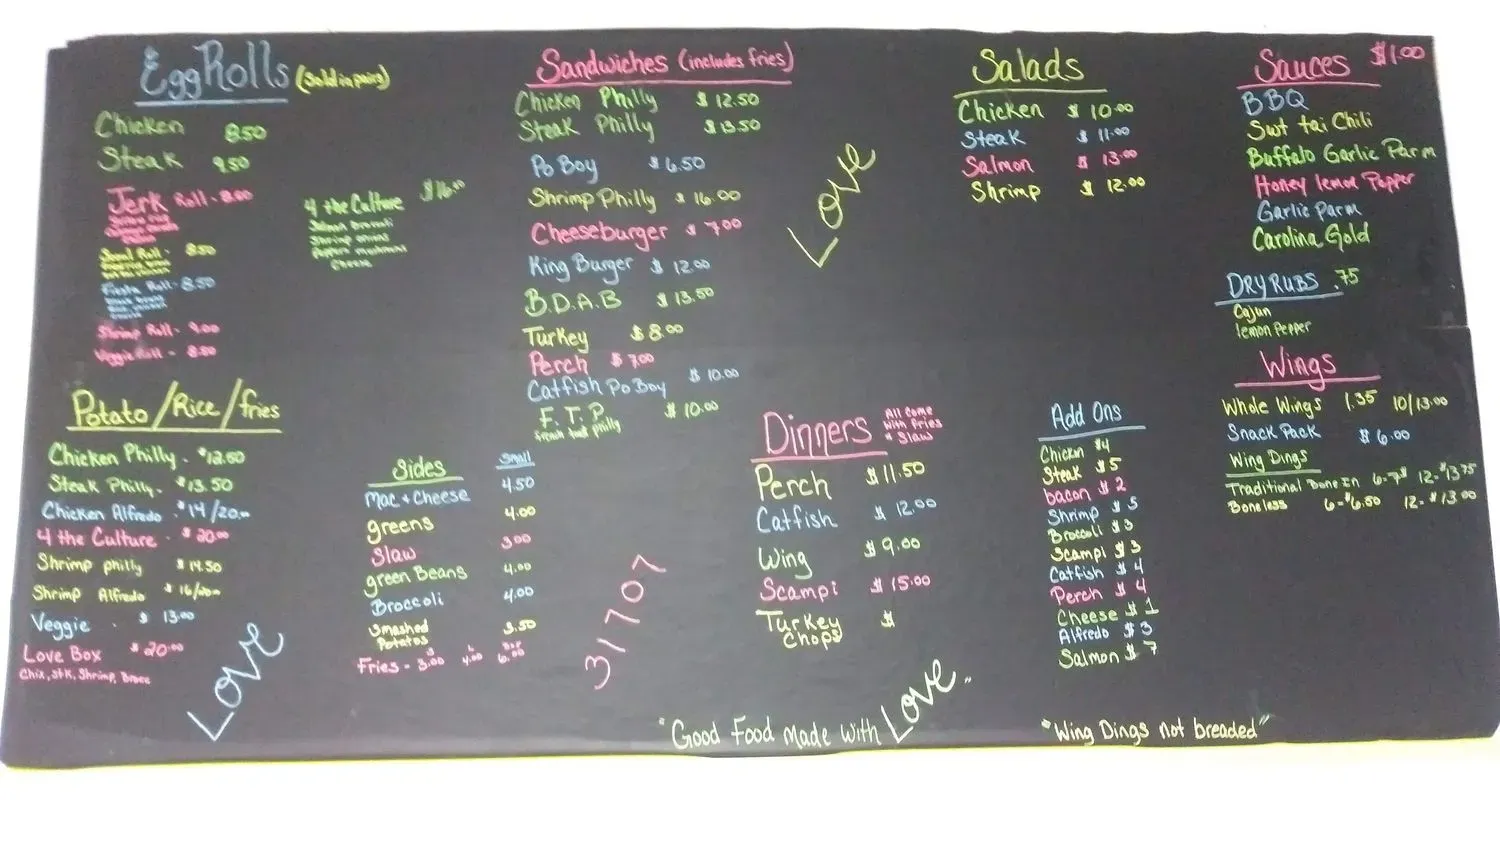 Egg Rolls (Sold in pairs)
Chicken 8.50
Steak 9.50
Jerk Roll - 8.00
4 the Culture $16.00
Steak broccoli
Shrimp onions
Peppers mushrooms
Cheese
Roll - 8.50
Fiesta Roll - 8.50
Shrimp Roll - 9.00
Veggie Roll - 8.50
Potato/Rice/fries
Chicken Philly - $12.50
Steak Philly - $13.50
Chicken Alfredo - $14/20.00
4 the Culture - $20.00
Shrimp philly $14.50
Shrimp Alfredo $16/20.00
Veggie . $13.00
Love Box $20.00
Chix, stk, Shrimp, Brocc
LOVE
Sandwiches (includes fries)
Chicken Philly $12.50
Steak Philly $13.50
Po Boy $6.50
Shrimp Philly $16.00
Cheeseburger $7.00
King Burger $12.00
B.D.A.B $13.50
Turkey $8.00
Perch $7.00
Catfish Po Boy $10.00
F.T.P. $10.00
philly
Sides Small
Mac + Cheese 4.50
greens 4.00
Slaw 3.00
green Beans 4.00
Broccoli 4.00
Smashed Potatos 3.50
Fries - 3.00 4.00 6.00
31707
LOVE
Dinners All Come with fries + Slaw
Perch $11.50
Catfish $12.00
Wing $9.00
Scampi $15.00
Turkey Chops $
Salads
Chicken $10.00
Steak $11.00
Salmon $13.00
Shrimp $12.00
Add Ons
Chicken $4
Steak $5
bacon $2
Shrimp $5
Broccoli $3
Scampi $3
Catfish $4
Perch $4
Cheese $1
Alfredo $3
Salmon $7
Sauces $1.00
BBQ
Swt tai Chili
Buffalo Garlic Parm
Honey lemon Pepper
Garlic Parm
Carolina Gold
DRY RUBS .75
Cajun
lemon Pepper
Wings
Whole Wings 1.35 10/13.00
Snack Pack $6.00
Wing Dings
Traditional Bone In 6-7$ 12-$13.75
Boneless 6-$6.50 12-$13.00
"Good Food Made with LOVE"
"Wing Dings not breaded"